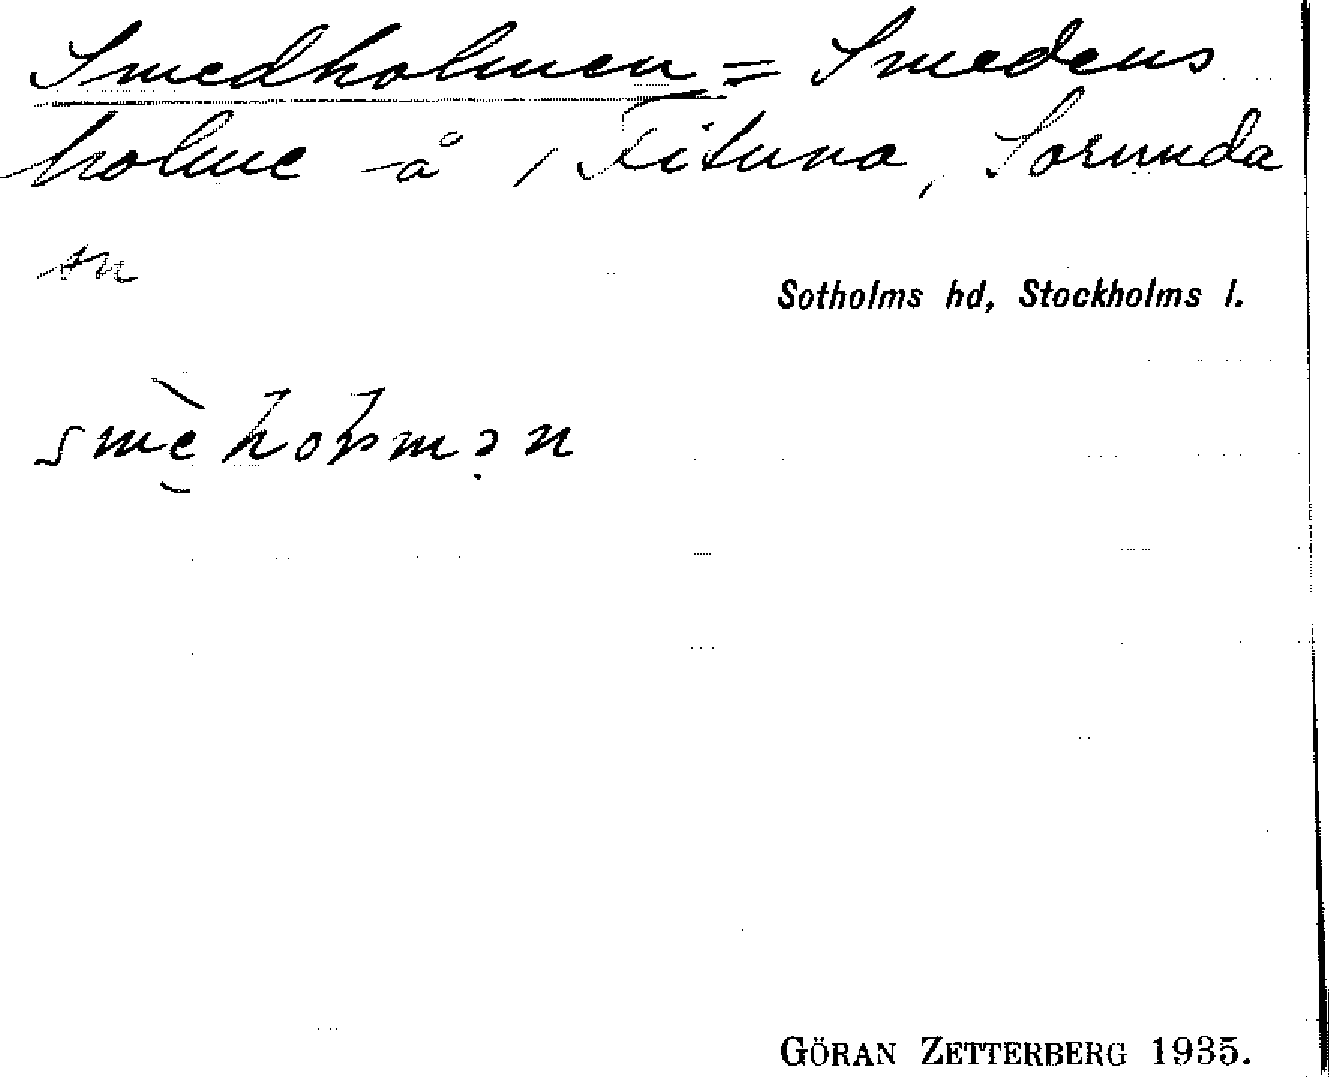 Smedholmen = Smedens
holme å / Fituna, Sorunda
sn
Sotholms hd, Stockholms l.
GÖRAN ZETTERBERG 1935.